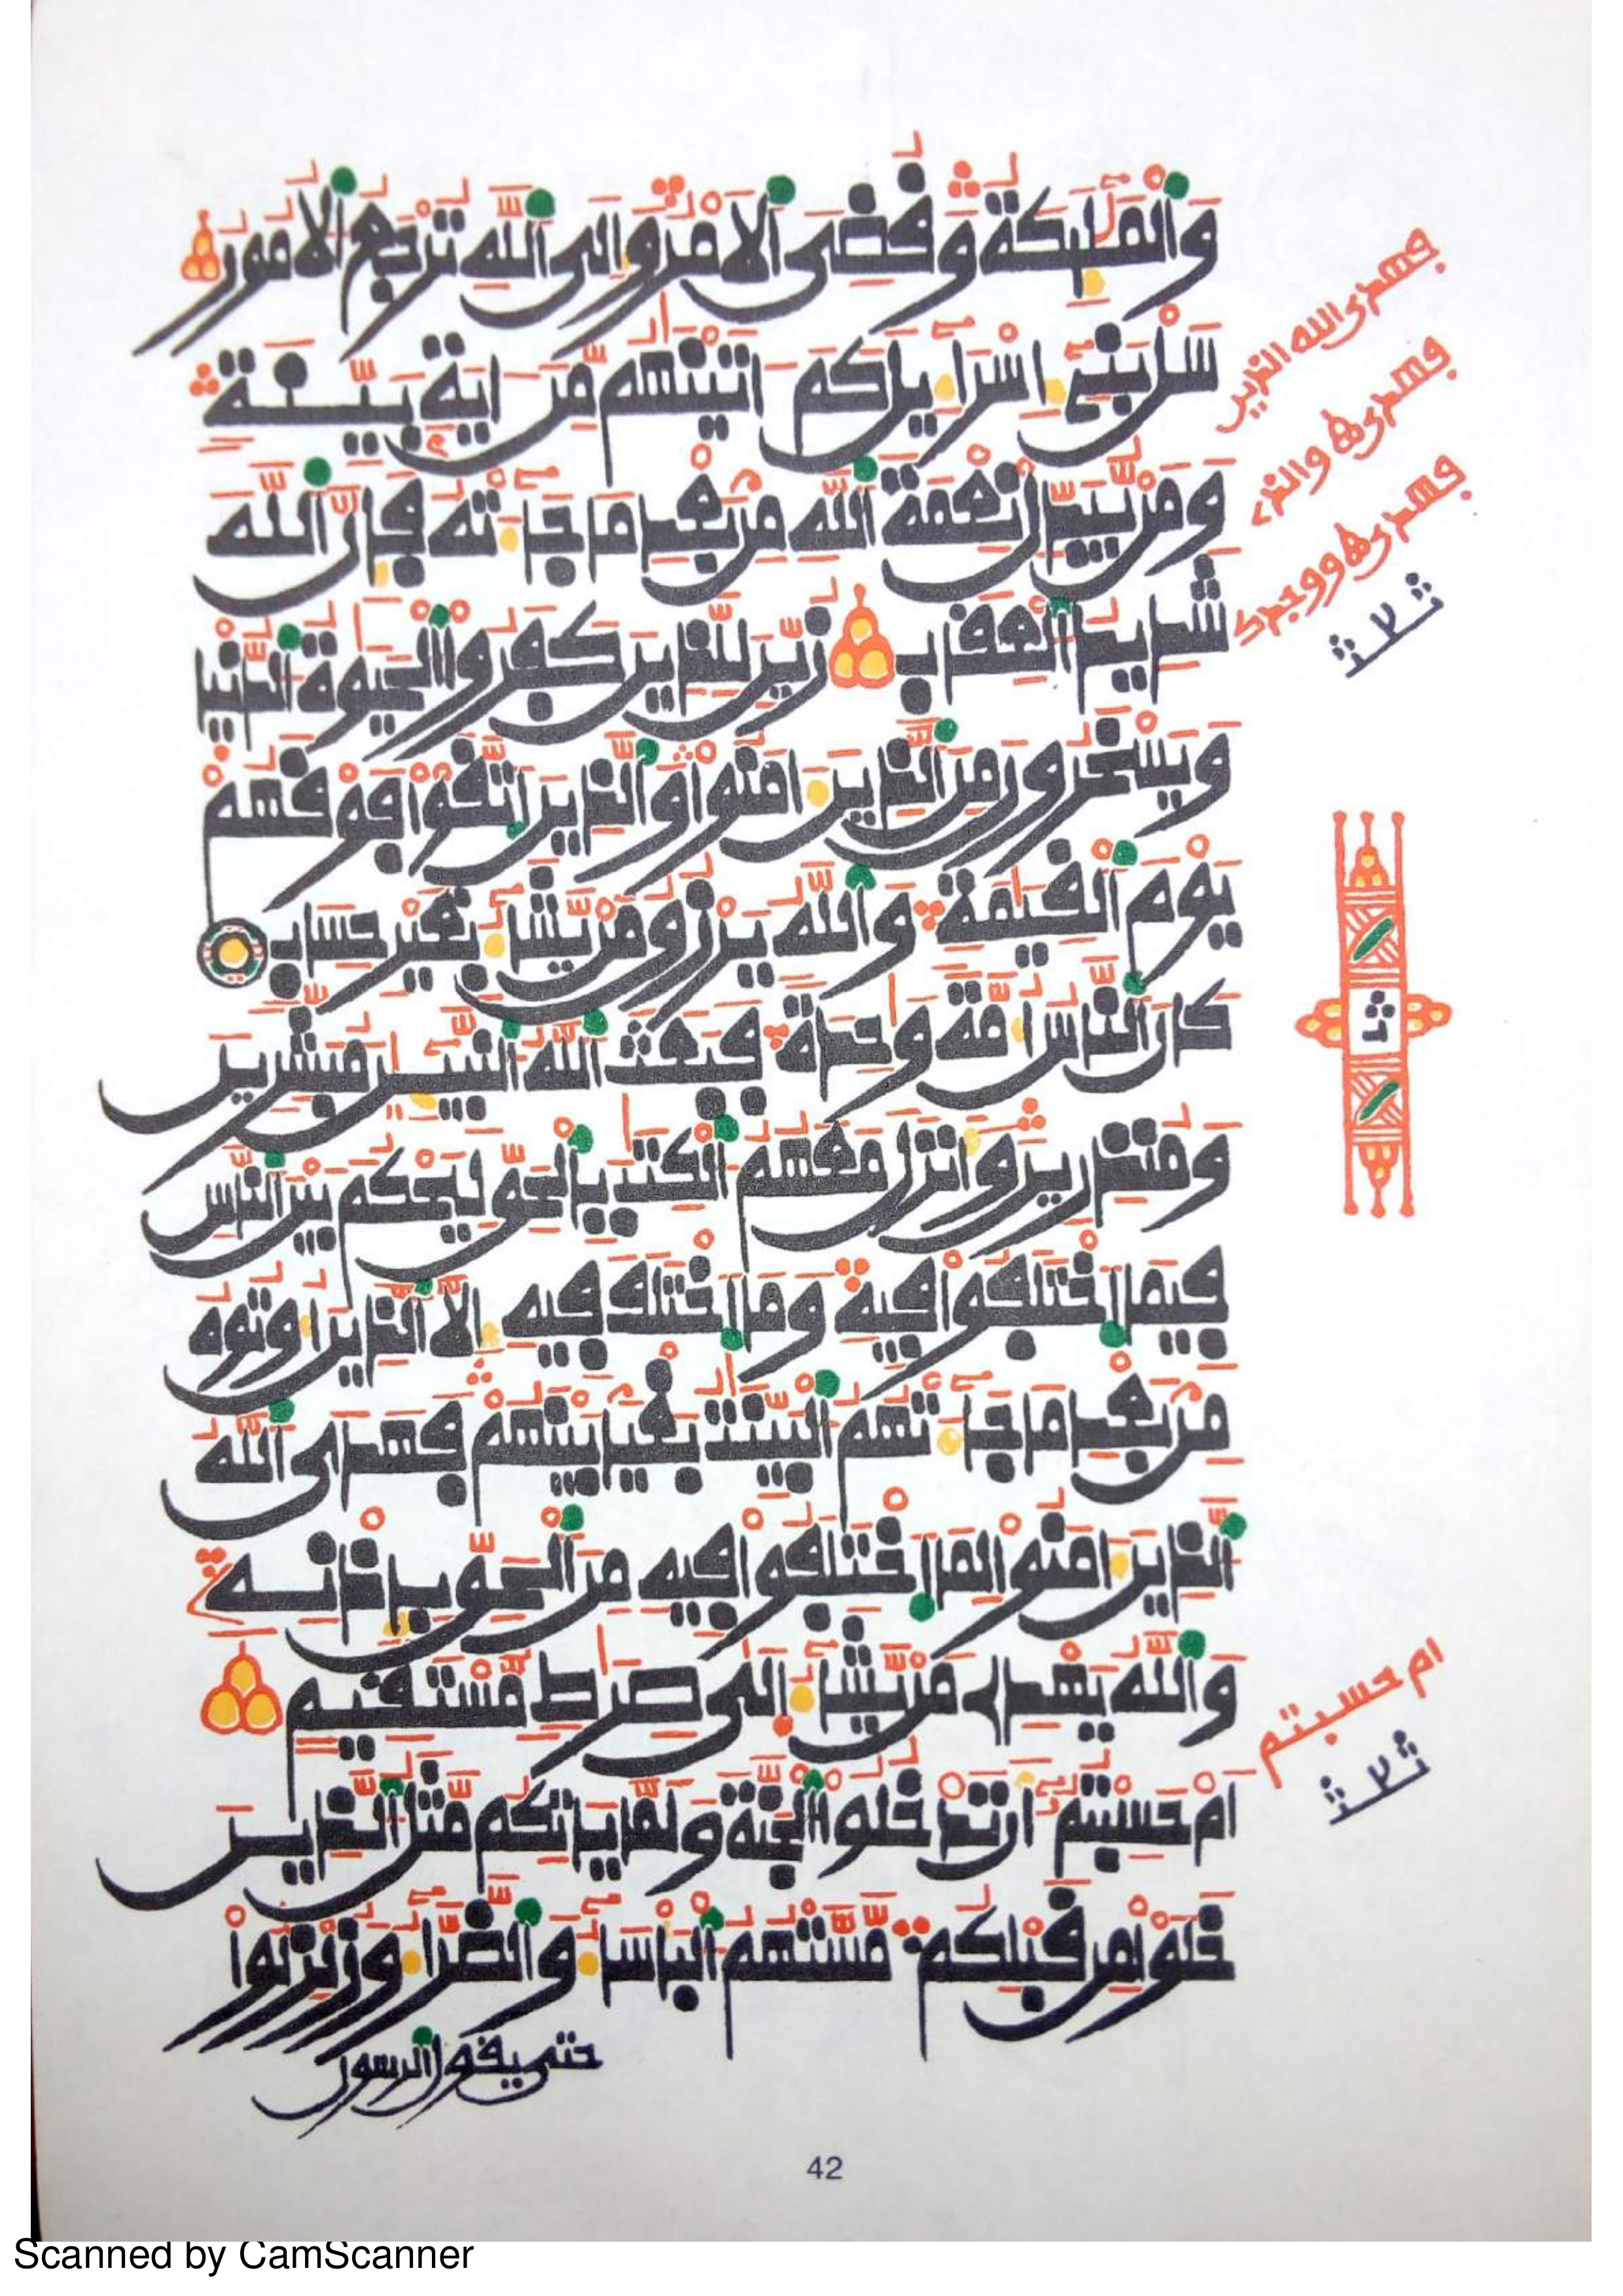 وَالْمَلَٰٓئِكَةُ وَقُضِيَ الْأَمْرُ وَإِلَى اللَّهِ تُرْجَعُ الْأُمُورُ
سَلْ بَنِيٓ إِسْرَآءِيلَ كَمَ اٰتَيْنَٰهُم مِّنَ اٰيَةِۢ بَيِّنَةٍ
وَمَنْ يُّبَدِّلْ نِعْمَةَ اللَّهِ مِنۢ بَعْدِ مَا جَآءَتْهُ فَإِنَّ اللَّهَ
شَدِيدُ الْعِقَابِ زُيِّنَ لِلَّذِينَ كَفَرُوا الْحَيَوٰةُ الدُّنْيَا
وَيَسْخَرُونَ مِنَ الَّذِينَ ءَامَنُوا وَالَّذِينَ اتَّقَوْا فَوْقَهُمْ
يَوْمَ الْقِيَٰمَةِ وَاللَّهُ يَرْزُقُ مَنْ يَّشَآءُ بِغَيْرِ حِسَابٍ
كَانَ النَّاسُ أُمَّةً وَٰحِدَةً فَبَعَثَ اللَّهُ النَّبِيٓـِٔينَ مُبَشِّرِينَ
وَمُنذِرِينَ وَأَنزَلَ مَعَهُمُ الْكِتَٰبَ بِالْحَقِّ لِيَحْكُمَ بَيْنَ النَّاسِ
فِيمَا اخْتَلَفُوا فِيهِ وَمَا اخْتَلَفَ فِيهِ إِلَّا الَّذِينَ أُوتُوهُ
مِنۢ بَعْدِ مَا جَآءَتْهُمُ الْبَيِّنَٰتُ بَغْيَاۢ بَيْنَهُمْ فَهَدَى اللَّهُ
الَّذِينَ ءَامَنُوا لِمَا اخْتَلَفُوا فِيهِ مِنَ الْحَقِّ بِإِذْنِهِۦ
وَاللَّهُ يَهْدِي مَنْ يَّشَآءُ إِلَىٰ صِرَٰطٍ مُّسْتَقِيمٍ
أَمْ حَسِبْتُمُۥٓ أَن تَدْخُلُوا الْجَنَّةَ وَلَمَّا يَأْتِكُم مَّثَلُ الَّذِينَ
خَلَوْا مِن قَبْلِكُم مَّسَّتْهُمُ الْبَأْسَآءُ وَالضَّرَّآءُ وَزُلْزِلُوا
حتى يقول الرسول
فهدى الله الذين
فهدىٰه
فهدىٰه ووجدك
ث
ام حسبتم
42
Scanned by CamScanner